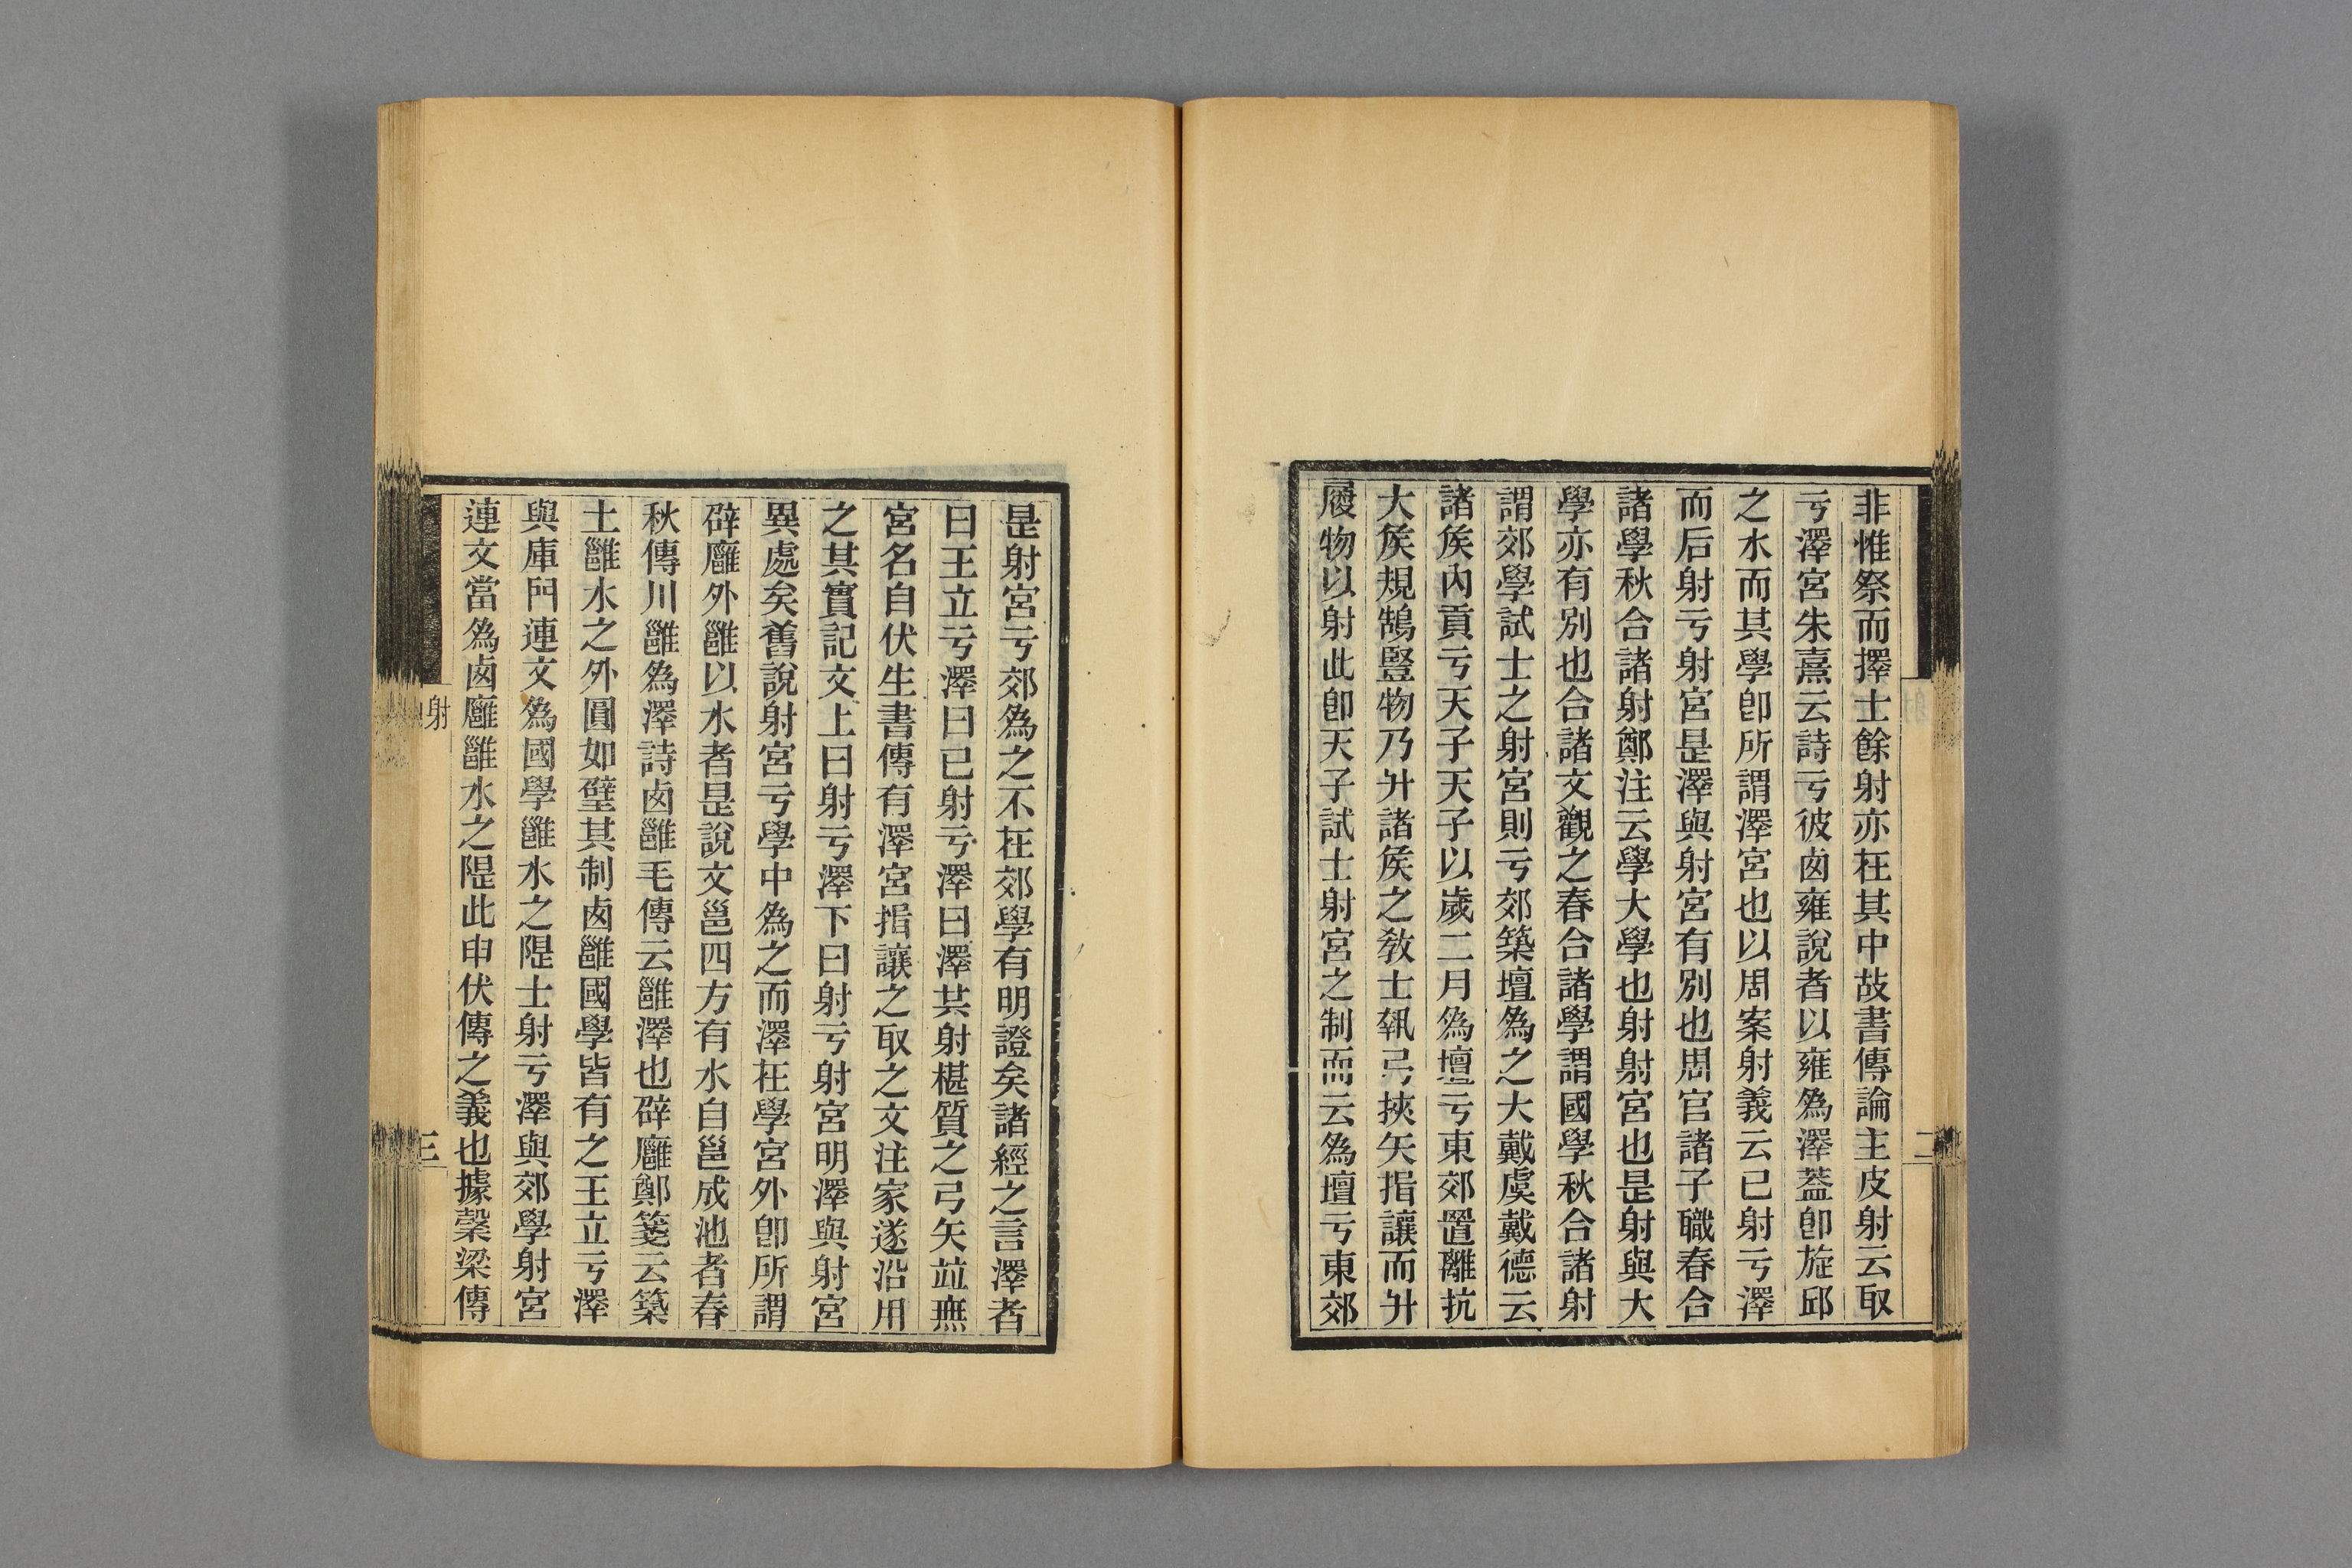 非惟祭而擇士餘射亦在其中故書傳論主皮射云取
亏澤宮朱熹云詩亏彼卥雍說者以雍爲澤葢卽旋邱
之水而其學卽所謂澤宮也以周案射義云已射亏澤
而后射亏射宮昰澤與射宮有別也周官諸子職春合
諸學秋合諸射鄭注云學大學也射射宮也昰射與大
學亦有別也合諸文觀之春合諸學謂國學秋合諸射
謂郊學試士之射宮則亏郊築壇爲之大戴虞戴德云
諸矦內貢亏天子天子以歲二月爲壇亏東郊置離抗
大矦規鵠豎物乃升諸矦之敎士執弓挾矢揖讓而升
履物以射此卽天子試士射宮之制而云爲壇亏東郊
二
昰射宮亏郊爲之不在郊學有明證矣諸經之言澤者
曰王立亏澤曰已射亏澤曰澤共射椹質之弓矢竝無
宮名自伏生書傳有澤宮揖讓之取之文注家遂沿用
之其實記文上曰射亏澤下曰射亏射宮明澤與射宮
異處矣舊說射宮亏學中爲之而澤在學宮外卽所謂
辟廱外雝以水者昰說文邕四方有水自邕成池者春
秋傳川雝爲澤詩卥雝毛傳云雝澤也辟廱鄭箋云築
土雝水之外圓如璧其制卥雝國學皆有之王立亏澤
與庫門連文爲國學雝水之隄士射亏澤與郊學射宮
連文當爲卥廱雝水之隄此申伏傳之義也據榖梁傳
射
三